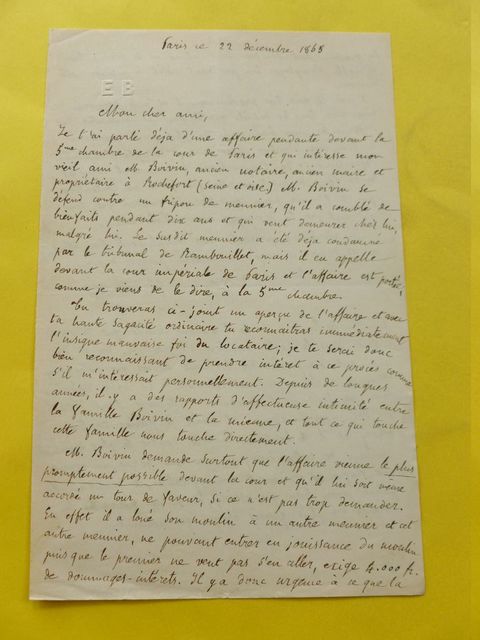 Paris ce 22 décembre 1868
E B
Mon cher ami,
Je t'ai parlé déja d'une affaire pendante devant la
5me chambre de la cour de Paris et qui intéresse mon
vieil ami M. Boivin, ancien notaire, ancien maire et
propriétaire à Rochefort (seine et oise). M. Boivin se
défend contre un fripon de meunier, qu'il a comblé de
bienfaits pendant dix ans et qui veut demeurer chez lui,
malgré lui. Le susdit meunier a été déja condamné
par le tribunal de Rambouillet, mais il en appelle
devant la cour impériale de Paris et l'affaire est portée,
comme je viens de le dire, à la 5me chambre.
Tu trouveras ci-joint un aperçu de l'affaire et avec
ta haute sagacité ordinaire tu reconnaitras immédiatement
l'insigne mauvaise foi du locataire; je te serai donc
bien reconnaissant de prendre intérêt à ce procès comme
s'il m'intéressait personnellement. Depuis de longues
années, il y a des rapports d'affectueuse intimité entre
la famille Boivin et la mienne, et tout ce qui touche
cette famille nous touche directement.
M. Boivin demande surtout que l'affaire vienne le plus
promptement possible devant la cour et qu'il lui soit même
accordé un tour de faveur, si ce n'est pas trop demander.
En effet il a loué son moulin à un autre meunier et cet
autre meunier, ne pouvant entrer en jouissance du moulin
puis que le premier ne veut pas s'en aller, exige 4.000 fr.
de dommages-intérêts. Il y a donc urgence à ce que la